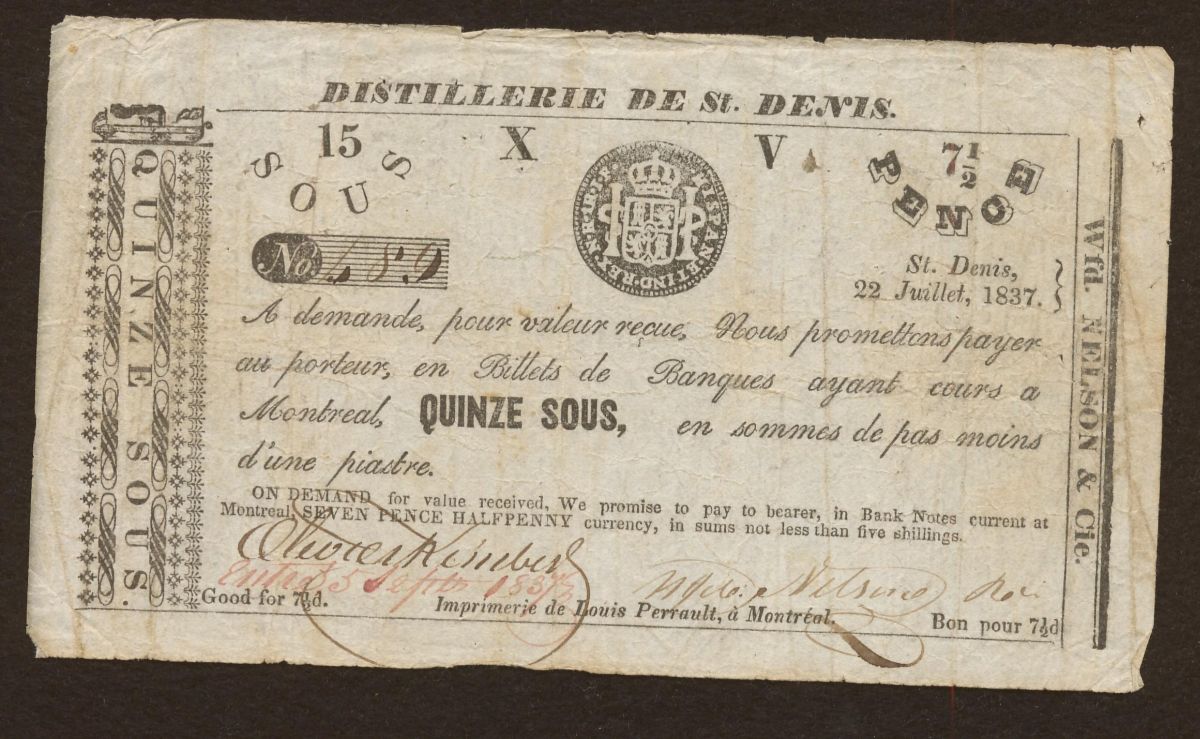 DISTILLERIE DE St. DENIS.
15
SOUS
X
V
7½
PENCE
No 489
St. Denis,
22 Juillet, 1837.
A demande, pour valeur reçue, Nous promettons payer
au porteur, en Billets de Banques ayant cours a
Montreal, QUINZE SOUS, en sommes de pas moins
d'une piastre.
ON DEMAND for value received, We promise to pay to bearer, in Bank Notes current at
Montreal, SEVEN PENCE HALFPENNY currency, in sums not less than five shillings.
Entré 5 Septr 1837
Nelson
Good for 7½d.
Imprimerie de Louis Perrault, à Montréal.
Bon pour 7½d
QUINZE SOUS.
Wfd. NELSON & Cie.